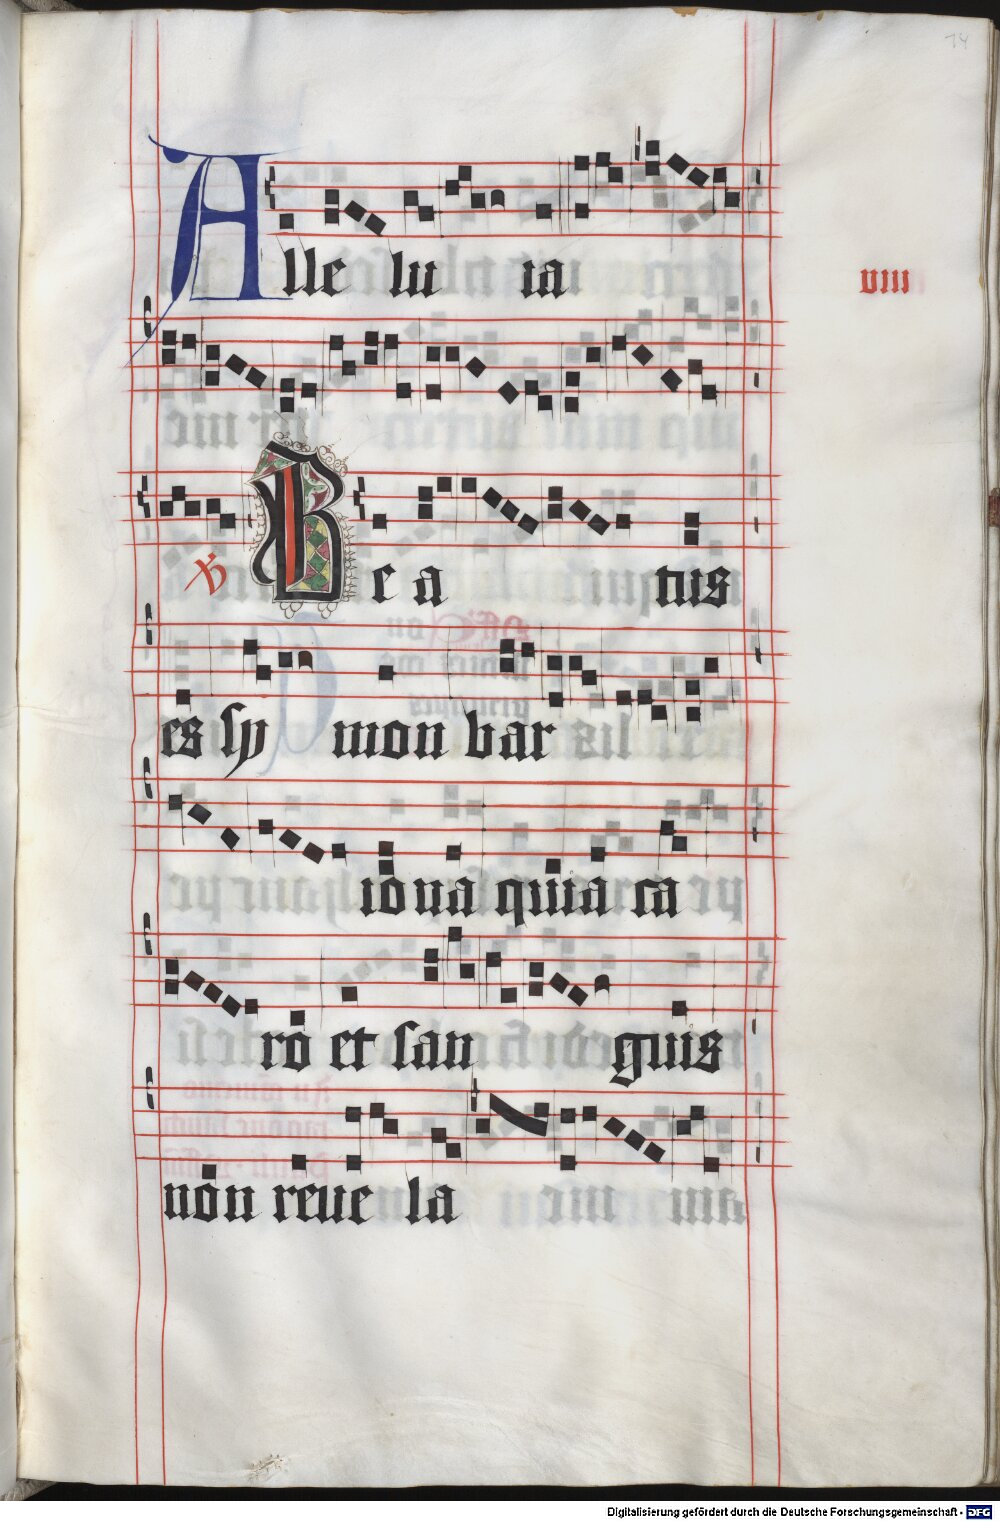 14
Alle lu ia
viii
℣ Be a tus
es sy mon bar
iona quia ca
ro et san guis
non reve la
Digitalisierung gefördert durch die Deutsche Forschungsgemeinschaft - DFG